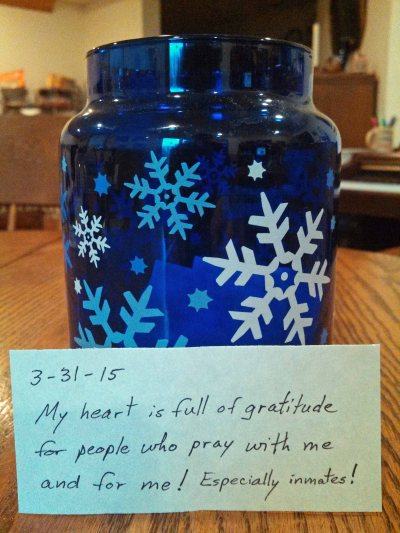 3-31-15
My heart is full of gratitude
for people who pray with me
and for me! Especially inmates!